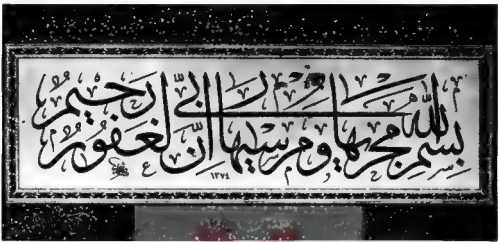 بسم الله مجریها ومرسیها ان ربی لغفور رحیم
١٢٧٤